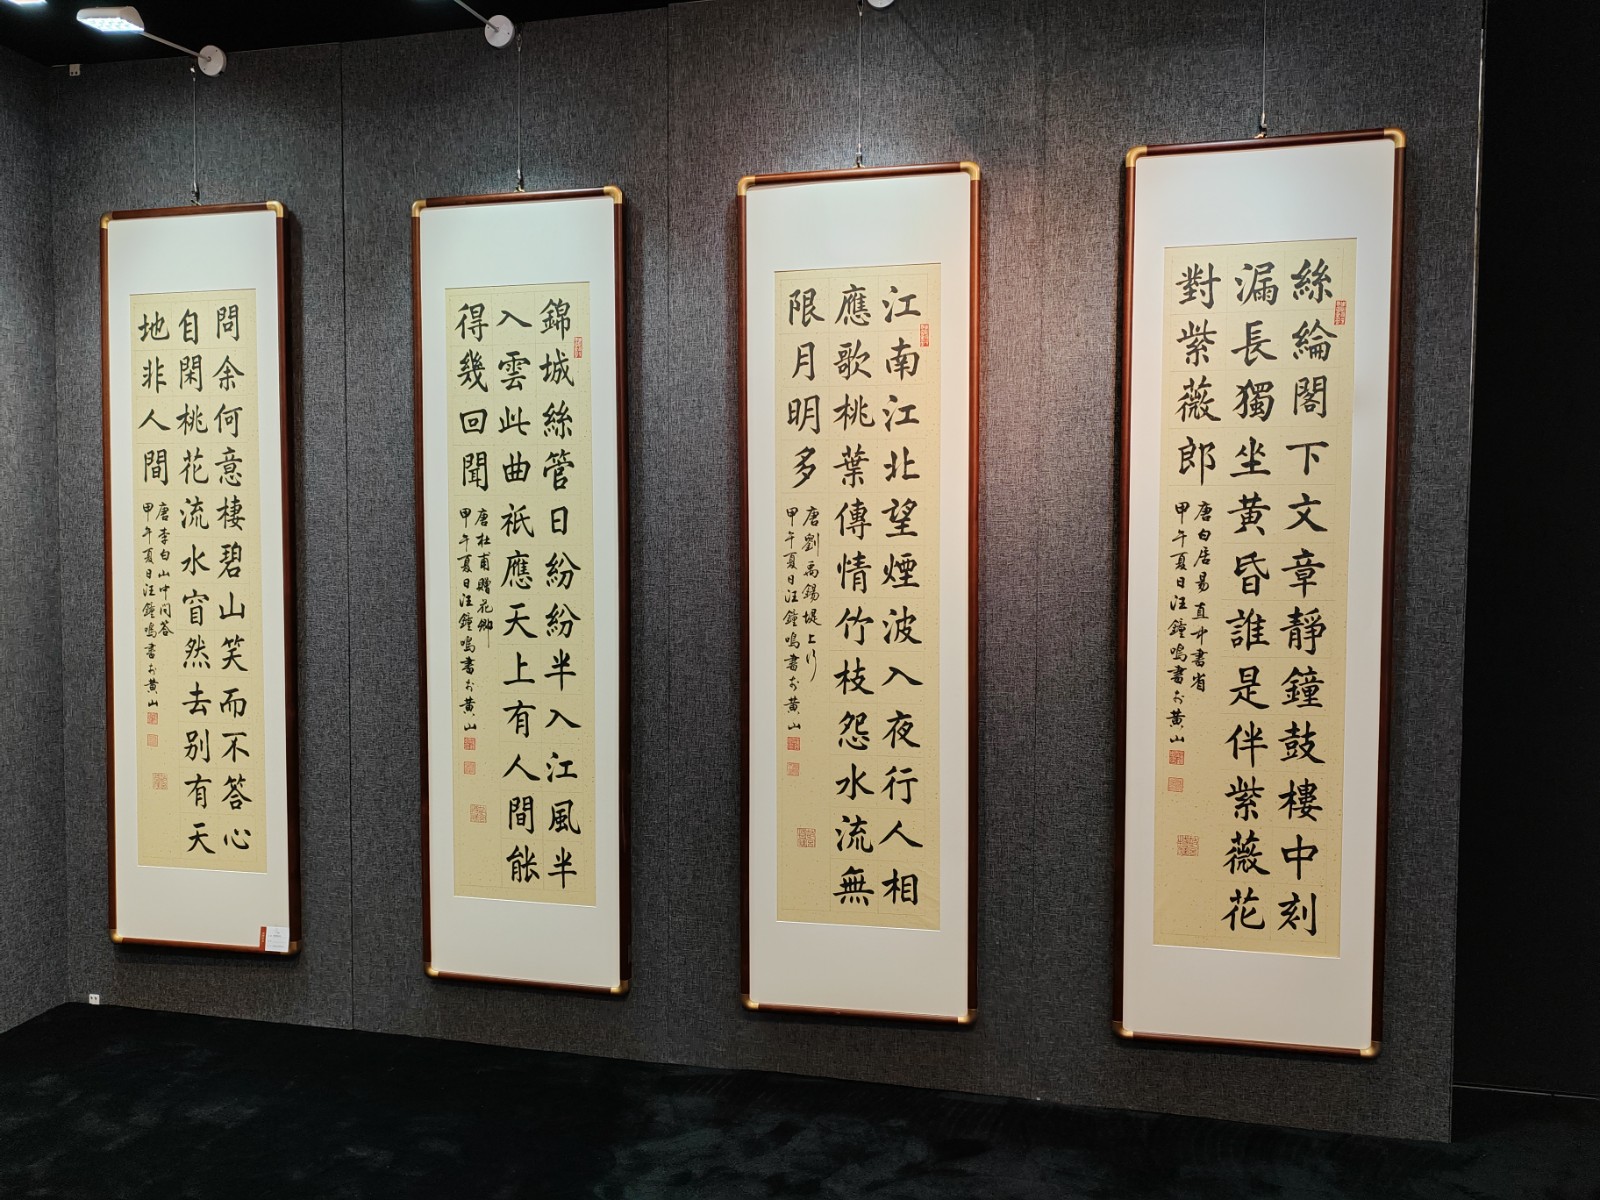 絲綸閣下文章靜鐘鼓樓中刻
漏長獨坐黃昏誰是伴紫薇花
對紫薇郎
唐白居易直中書省
甲午夏日汪鐘鳴書於黃山
江南江北望煙波入夜行人相
應歌桃葉傳情竹枝怨水流無
限月明多
唐劉禹錫堤上行
甲午夏日汪鐘鳴書於黃山
錦城絲管日紛紛半入江風半
入雲此曲祇應天上有人間能
得幾回聞
唐杜甫贈花卿
甲午夏日汪鐘鳴書於黃山
問余何意棲碧山笑而不答心
自閑桃花流水窅然去別有天
地非人間
唐李白山中問答
甲午夏日汪鐘鳴書於黃山